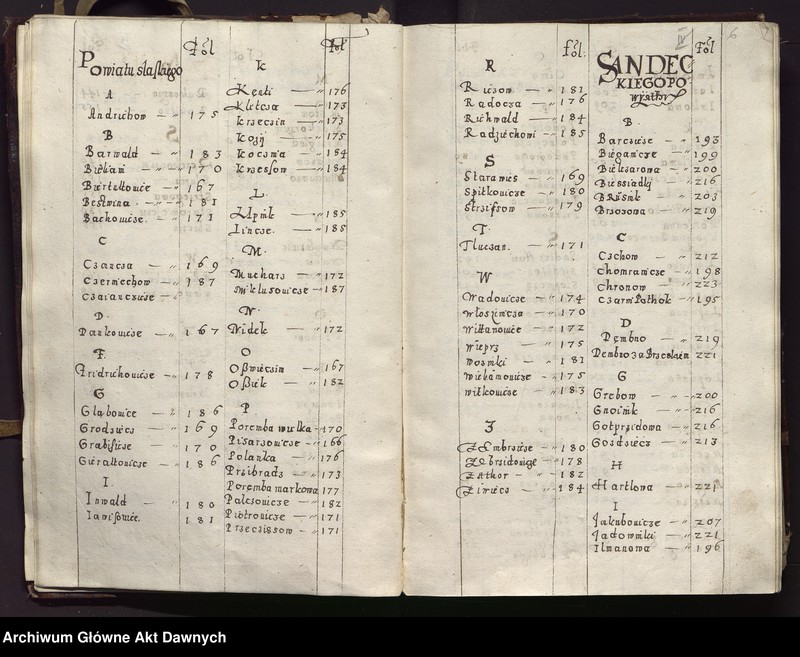 Powiatu slaskiego
Fol
A
Andrichow — 175
B
Barwald — 183
Bielani — 170
Biertultowice — 167
Bestwina — 181
Bachowicse — 171
C
Czancsa — 169
Czerniechow — 187
D
Dankowicse — 167
F
Fridrichowicse — 178
G
Glabowice — 186
Grodziecz — 169
Grabisicse — 170
Gieraltowicse — 186
I
Inwald — 180
Janisowice. 181
K
Fol
Kenti — 176
Kletcsa — 173
Krzecsin — 173
Kosÿ — 175
Kocsina — 184
Krzessow — 184
L
Lipnik — 185
Lincse — 185
M
Muchars — 172
Miklusowicse — 187
N
Nidek — 172
O
Oswiecsin — 167
Osiek — 182
P
Poremba wielka 170
Pisarzowicse — 166
Polanka — 176
Przibradz — 173
Poremba markowa 177
Palcsowicse — 182
Piotrowicse — 171
Przeciszow — 171
R
fol:
Ricsow — 181
Radocza — 176
Richwald — 184
Radziechowi — 185
S
Starawies — 169
Spitkowicse — 180
Strzissow — 179
T
Tlucsan — 171
W
Wadowicse — 174
Wloszienicsa — 170
Wittanowice — 172
Wieprz — 175
Wozniki — 181
Wilkanowicse — 175
Witkowicse — 183
Z
ZEmbrzicse — 180
Zebrzidowice — 178
ZAthor — 182
Ziwiecz — 184
IV
6
SANDEC
KIEGO PO
wjathv
Fol
B
Barcsicse — 193
Bieganicze — 199
Bielczarowa — 200
Biessiadki — 216
Brusnik — 203
Brzozowa — 219
C
Czchow — 212
Chomranicze — 198
Chronow — 223
Czarni Pothok — 195
D
Dembno — 219
Dembio za Brzeskiem 221
G
Grebow — 200
Gnoinik — 216
Gotprzidowa — 216
Gosdziecz — 213
H
Harklowa — 221
I
Jakubowicze — 207
Jadowniki — 221
Ilmanowa — 196
Archiwum Główne Akt Dawnych